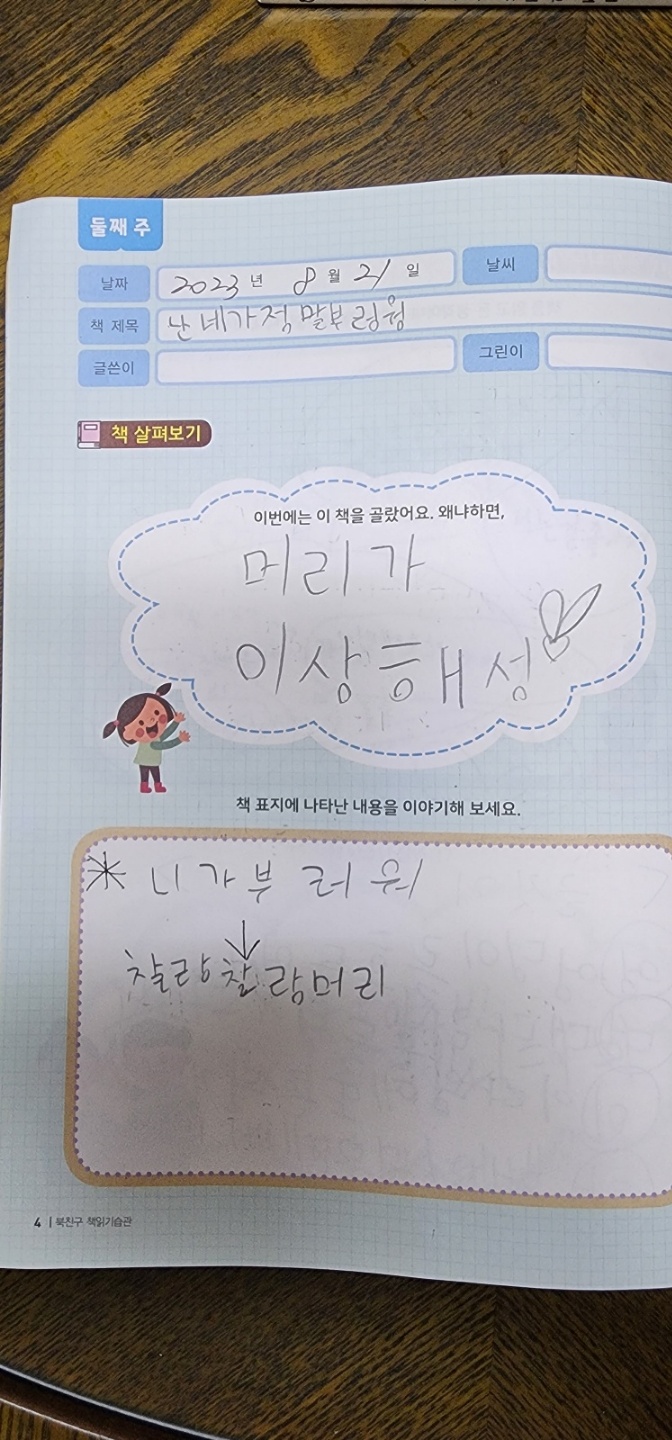 둘째 주
날짜 2023 년 8 월 21 일 날씨
책 제목 난네가정말부러워
글쓴이 그린이
책 살펴보기
이번에는 이 책을 골랐어요. 왜냐하면,
머리가
이상해성
책 표지에 나타난 내용을 이야기해 보세요.
* 니가부러워
찰랑찰랑머리
4 | 북친구 책읽기습관